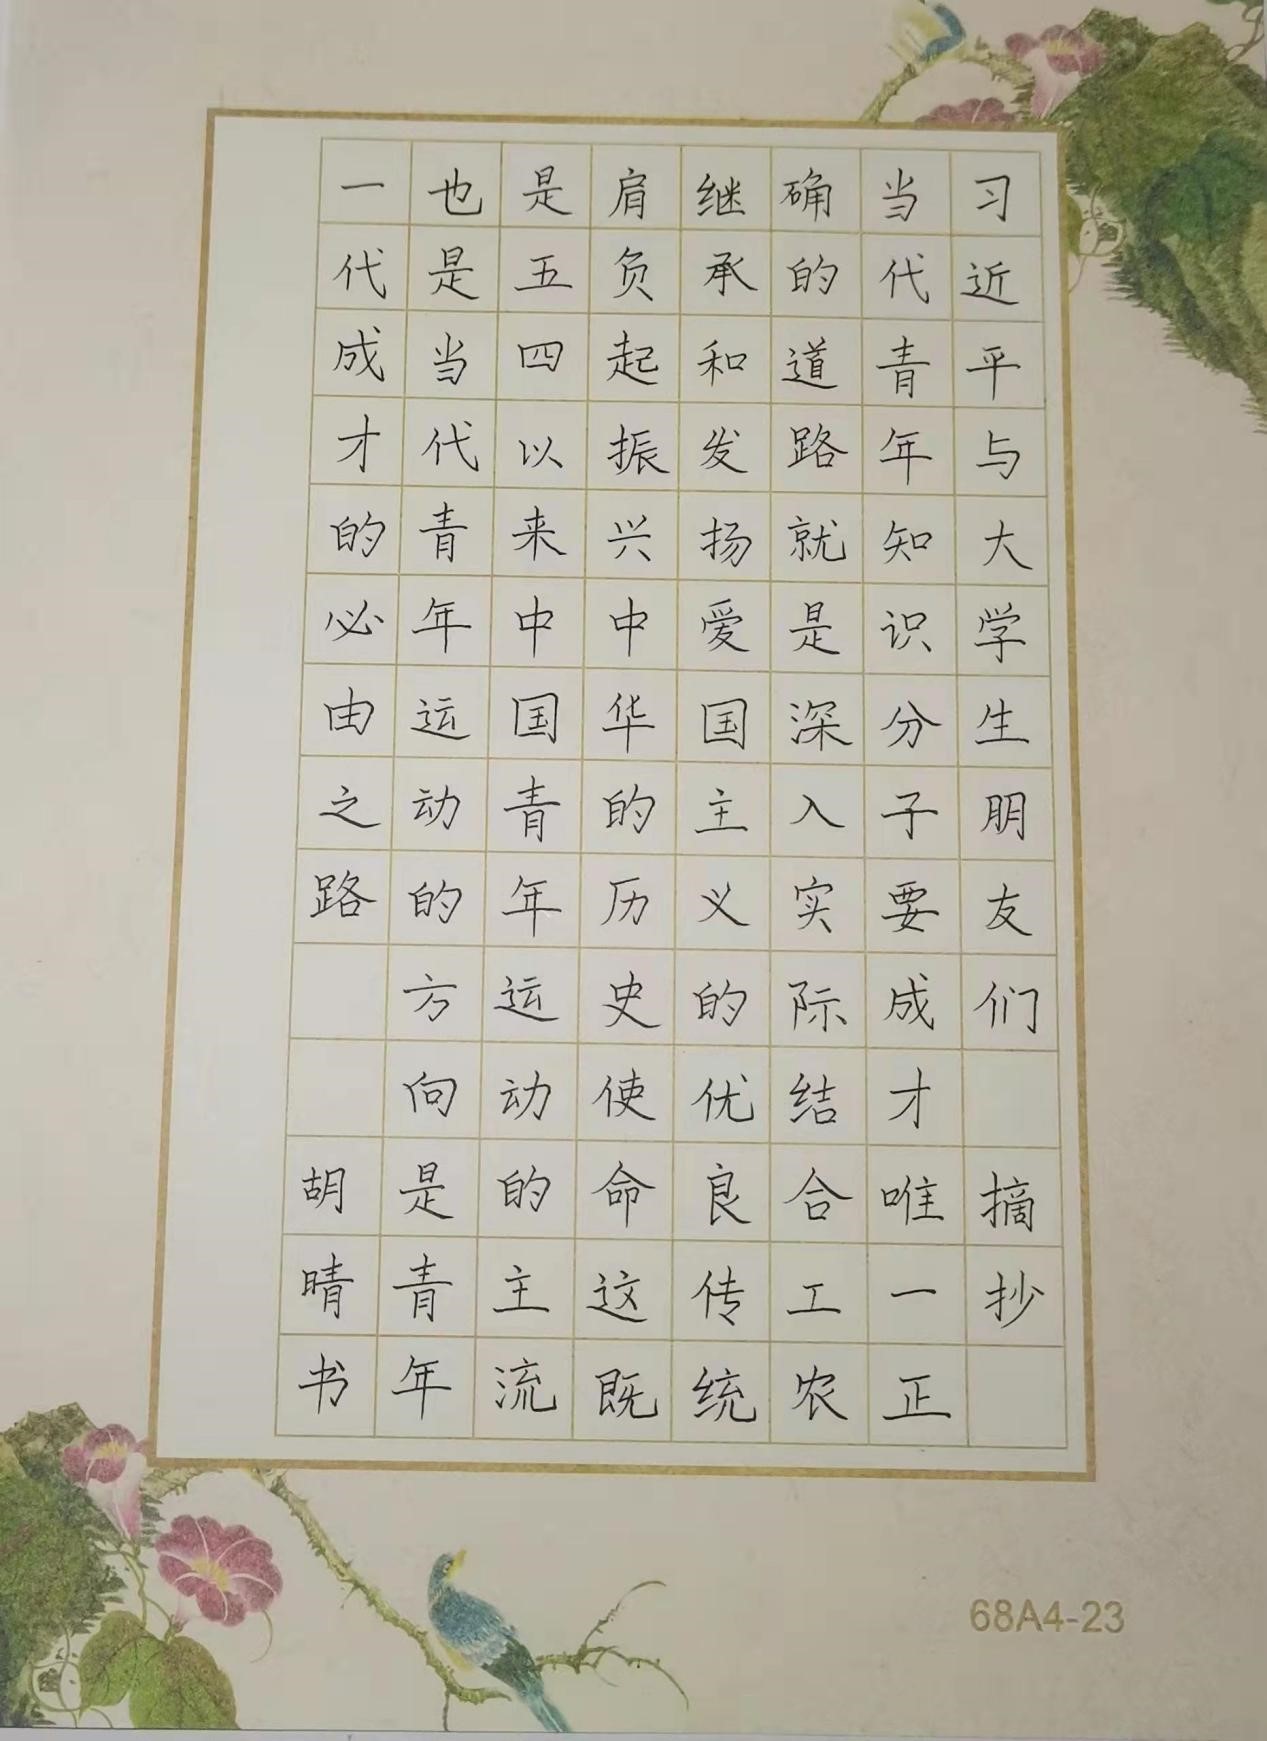 习近平与大学生朋友们 摘抄
当代青年知识分子要成才唯一正
确的道路就是深入实际结合工农
继承和发扬爱国主义的优良传统
肩负起振兴中华的历史使命这既
是五四以来中国青年运动的主流
也是当代青年运动的方向是青年
一代成才的必由之路 胡晴书
68A4-23